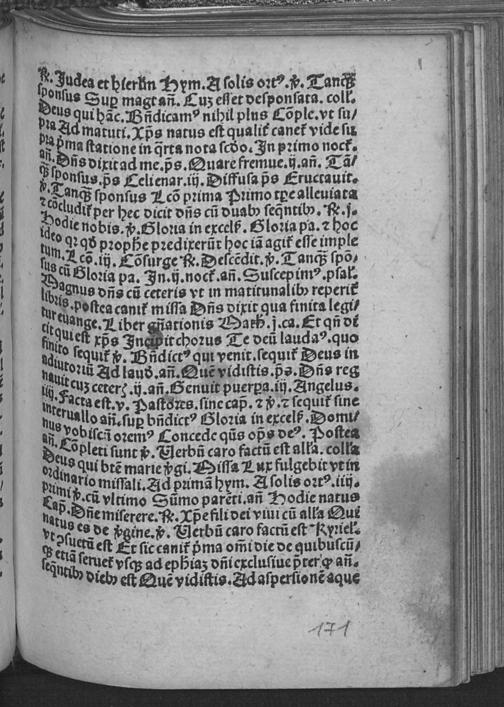 ℟. Judea et hierl̄m Hym. A solis ortꝰ. ℣. Tanq̄ꝫ
sponsus Sup̱ magt an̄. Cuꝫ esset desponsata. coll̄.
Deus qui hāc. Bn̄dicamꝰ nihil plus Cōple. vt su⸗
pra Ad matuti. Xp̄s natus est qualiť caneť vide su
pra p̄ma statione in q̄rta nota scd̄o. In primo nocť.
an̄. Dn̄s dixit ad me. p̄s. Quare fremue. ij. an̄. Tā⸗
q̄ꝫ sponsus. p̄s Celi enar. iij. Diffusa p̄s Eructauit.
℣. Tanq̄ꝫ sponsus Lcō prima Primo tp̄e alleuiata
⁊ cōcludiť per hec dicit dn̄s cū duabꝫ seq̄ntibꝫ. ℟. j.
Hodie nobis. ℣. Gloria in excelš. Gloria pa. ⁊ hoc
ideo qꝛ qd̓ prophe predixerūt hoc iā agiť esse imple
tum. Lcō. iij. Cōsurge ℟. Descēdit. ℣. Tanq̄ꝫ spō⸗
sus cū Gloria pa. In. ij. nocť. an̄. Suscepimꝰ. psal̄.
Magnus dn̄s cū ceteris vt in matitunalibꝫ reperiť
libris. postea caniť missa Dn̄s dixit qua finita legi⸗
tur euange. Liber gn̄ationis Math. j. ca. Et qn̄ dē
cit qui est xp̄s Incipit chorus Te deū laudaꝰ. quo
finito sequiť ℣. Bn̄dictꝰ qui venit. sequiť Deus in
adiutoriū Ad laud̓. an̄. Quē vidistis. p̄s. Dn̄s reg
nauit cuꝫ ceterꝭ. ij. an̄. Genuit puerp̱a. iij. Angelus.
iiij. Facta est. v. Pastores. sine cap̄. ⁊ ℣. ⁊ sequiť sine
interuallo an̄. sup̱ bn̄dictꝰ Gloria in excelš. Domi⸗
nus vobiscū oremꝰ Concede q̄ūs op̄s deꝰ. Postea
an̄. Cōpleti sunt ℣. Verbū caro factū est all̄a. coll̄a
Deus qui btē marie ꝟgi. Missa Lux fulgebit vt in
ordinario missali. Ad primā hym. A solis ortꝰ. iiij.
primi ℣. cū vltimo Sūmo parēti. an̄ Hodie natus
Cap̄. Dn̄e miserere. ℟. Xp̄e fili dei viui cū all̄a Qui
natus es de ꝟgine. ℣. Verbū caro factū est Kyriel̄.
vt ꝯsuetū est Et sic caniť p̄ma om̄i die de quibuscū⸗
qꝫ etiā serueť vsqꝫ ad ephiaꝫ dn̄i exclusiue p̄terqꝫ an̄.
seq̄ntibꝫ diebꝫ est Quē vidistis. Ad aspersionē aque
171